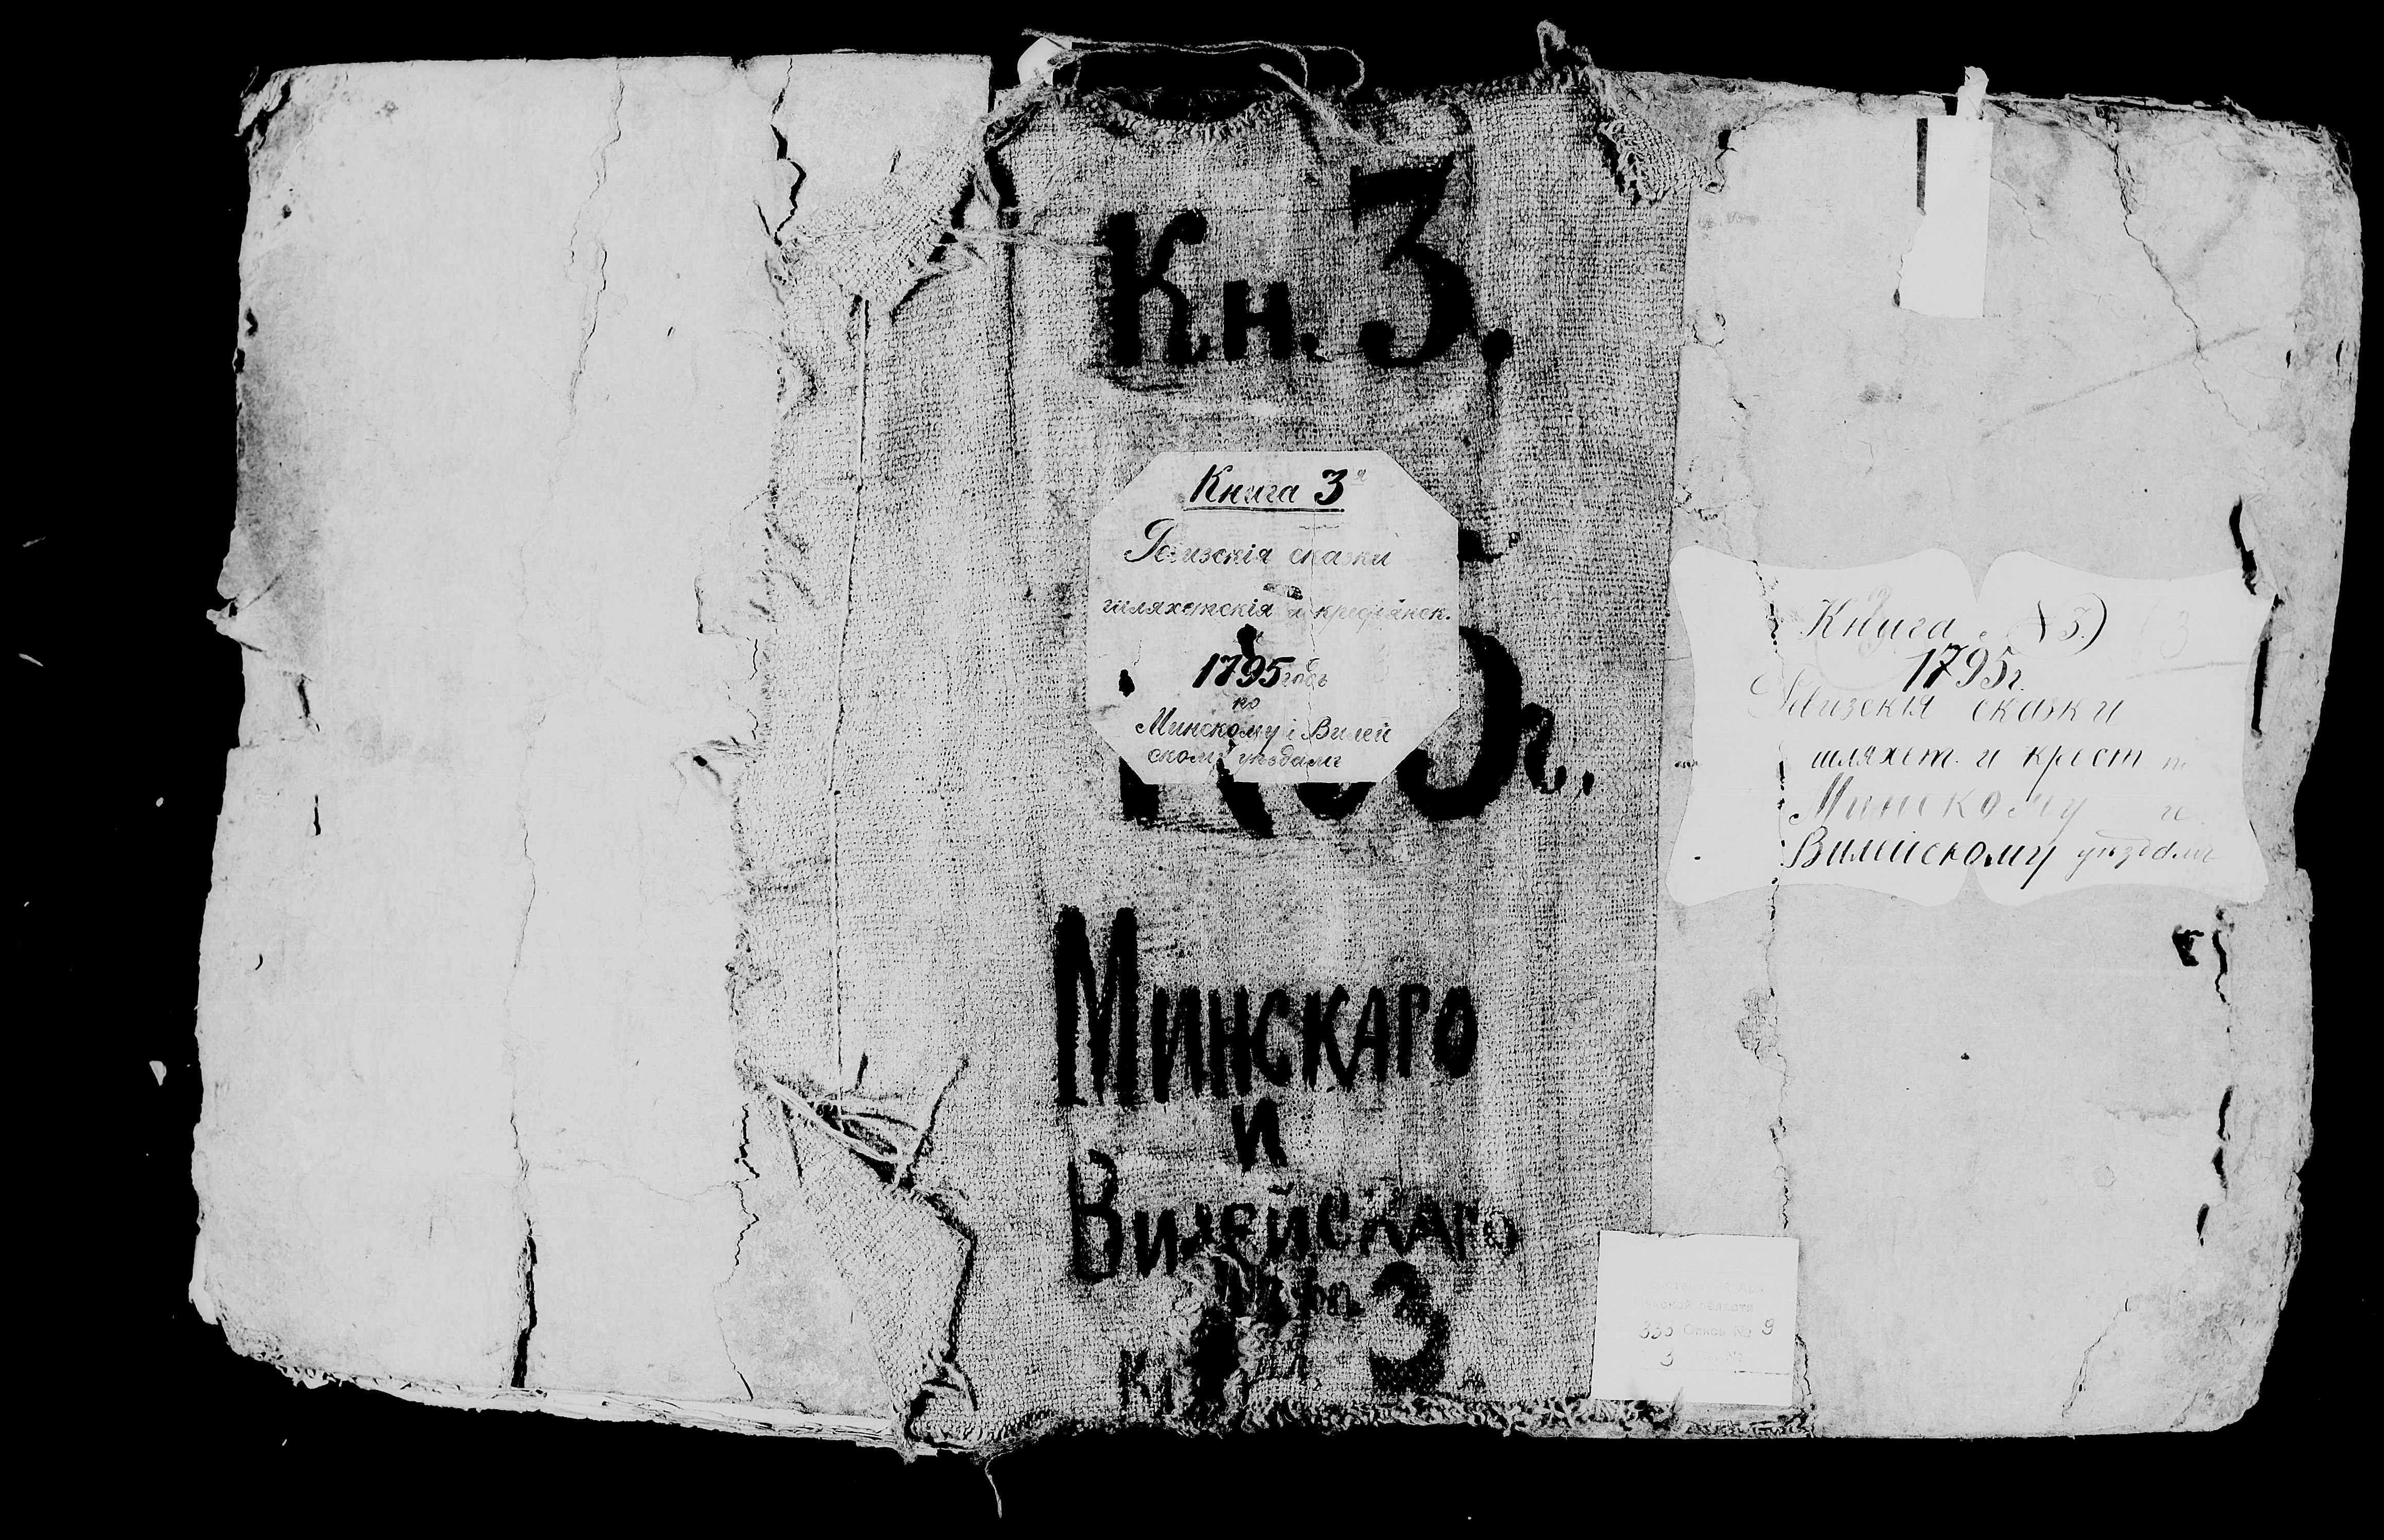 Кн. 3.
Книга 3я
Ревизскія сказки
шляхетскія и крестьянск.
1795 годъ
по
Минскому і Вилей
скому уѣздамъ
5 г.
Минскаго
и
Вилейскаго
3
Книга №3)
1795г.
Ревизскія сказки
шляхет. и крест п
Минскому и
Вилейскому уѣздамъ
области
333 Опись № 9
3